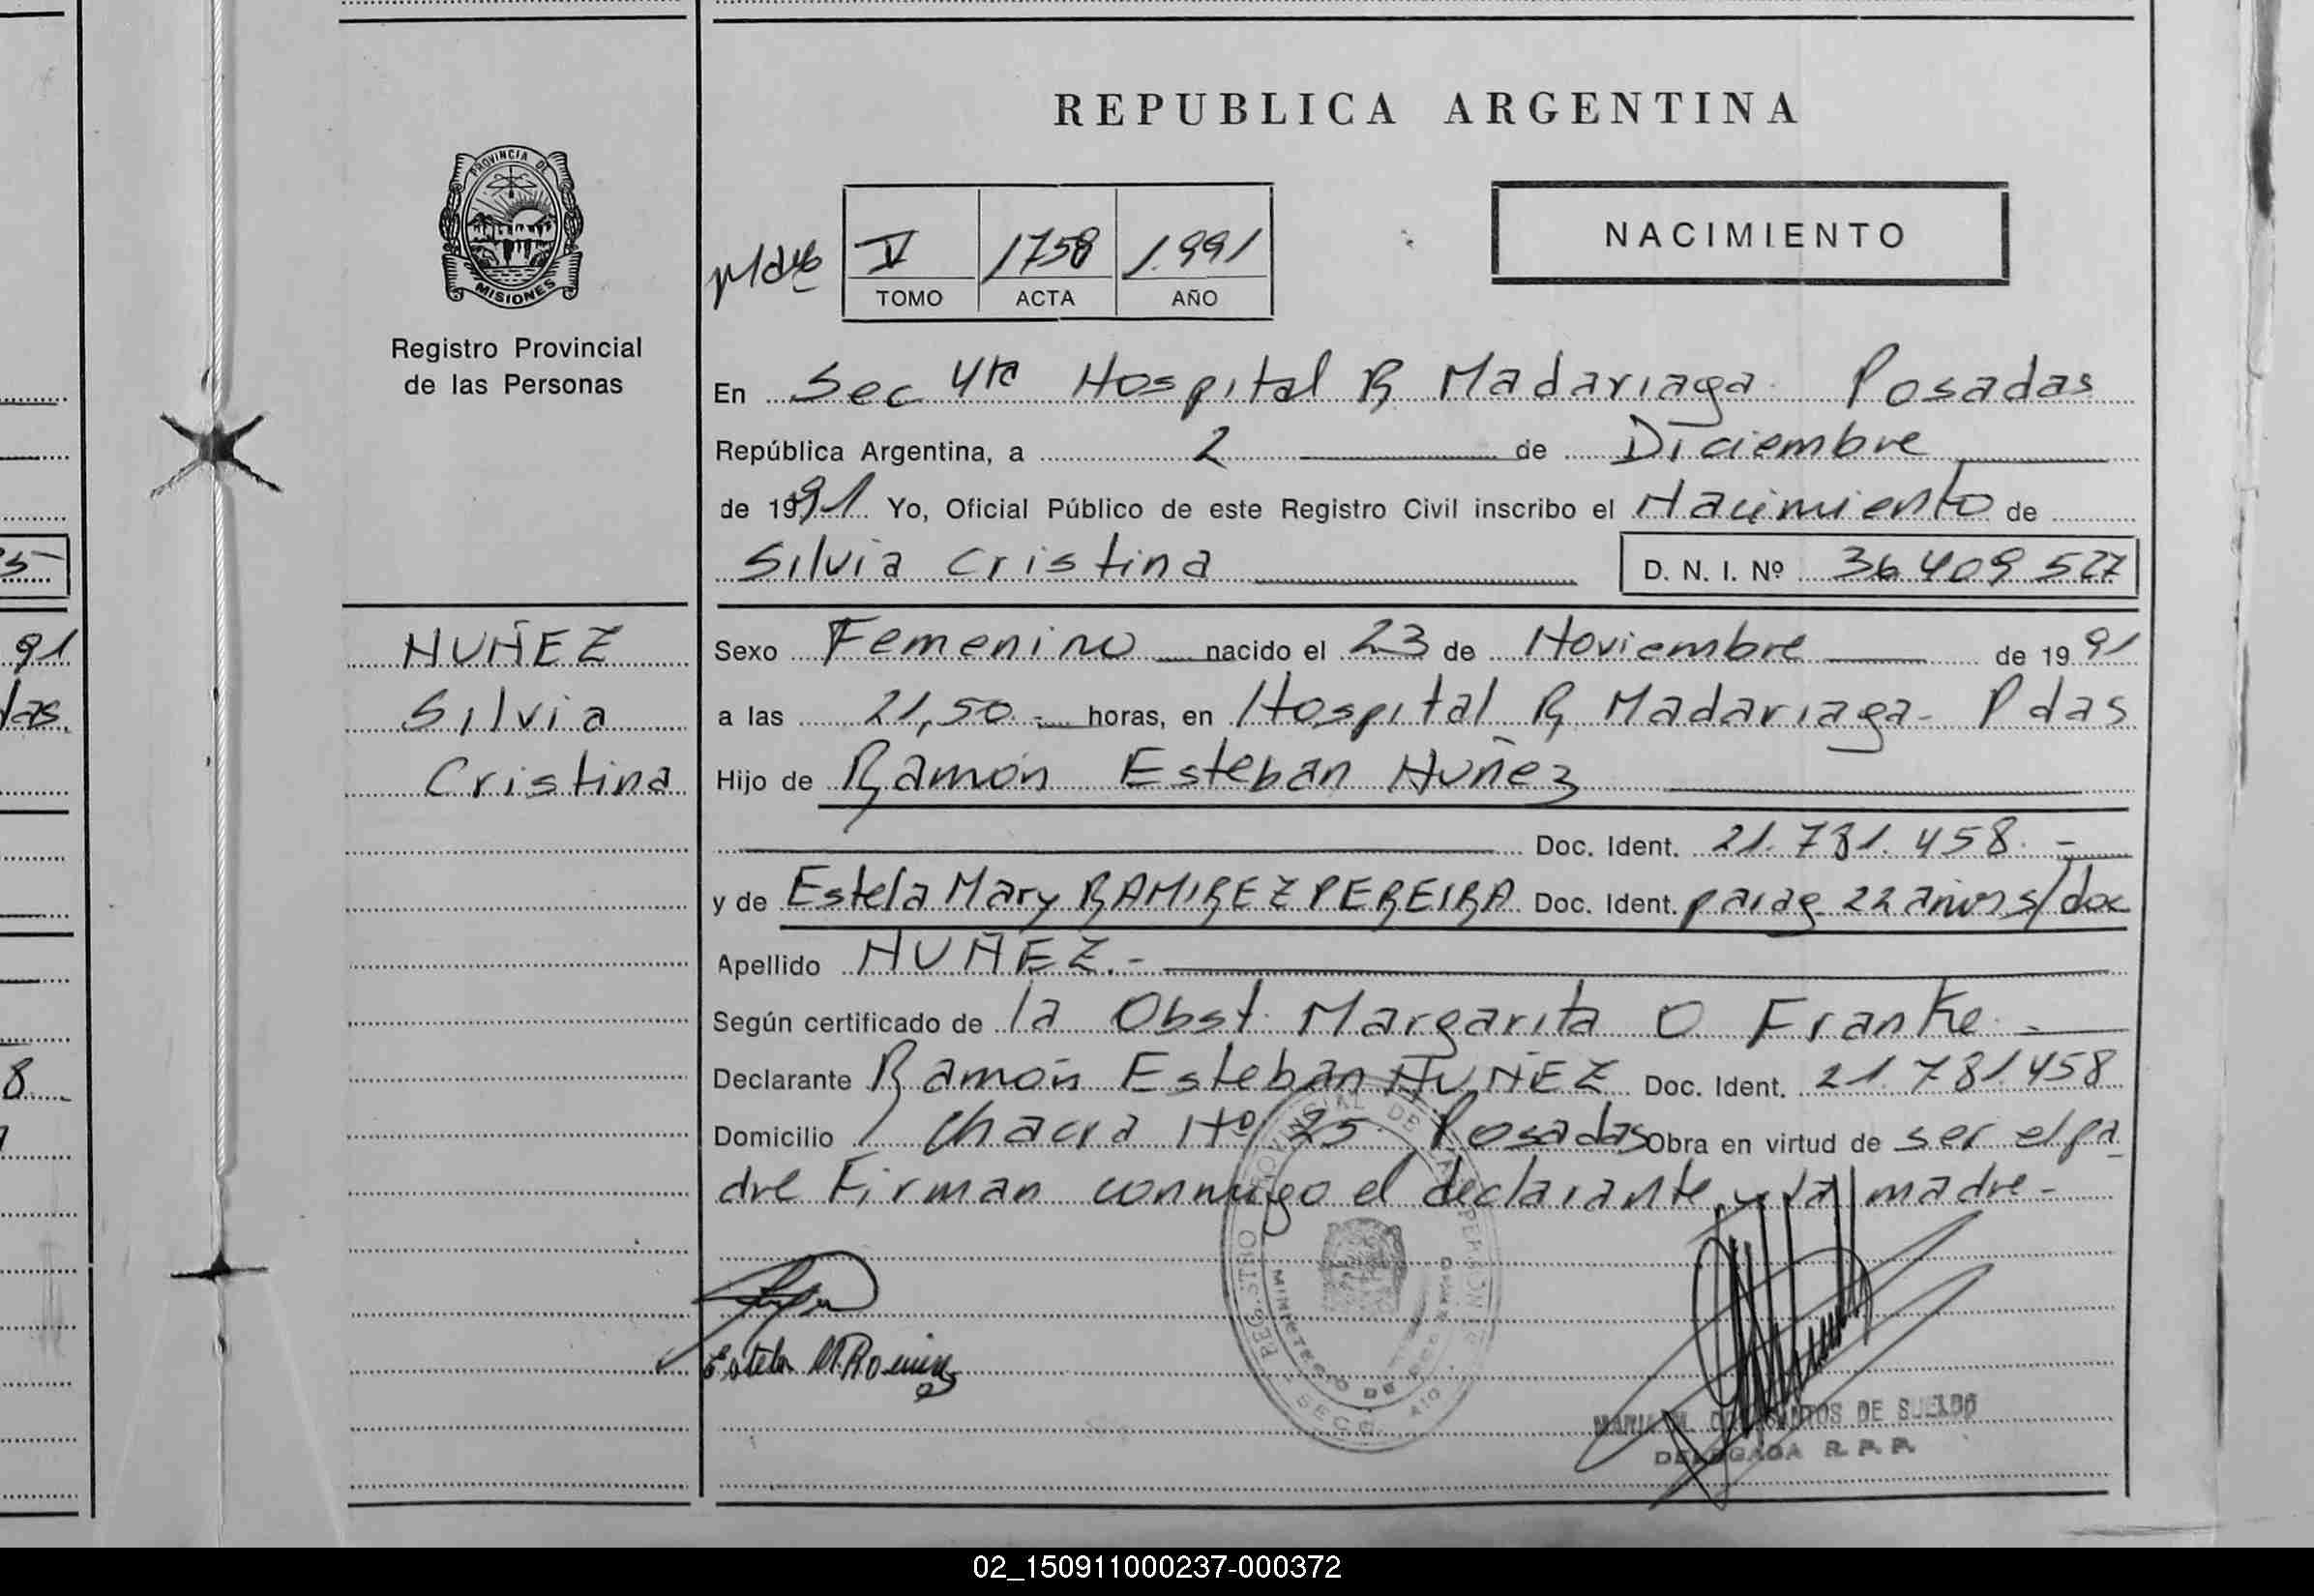 REPUBLICA ARGENTINA
PROVINCIA DE
MISIONES
Registro Provincial
de las Personas
NACIMIENTO
V 1758 1.991
TOMO ACTA AÑO
En Sec 4ta Hospital R Madariaga Posadas
República Argentina, a 2 de Diciembre
de 1991 Yo, Oficial Público de este Registro Civil inscribo el Nacimiento de
Silvia Cristina D. N. I. Nº 36 409 527
NUÑEZ
Silvia
Cristina
Sexo Femenino nacido el 23 de Noviembre de 1991
a las 21,50 horas, en Hospital R Madariaga - Pdas
Hijo de Ramón Esteban Nuñez
Doc. Ident. 21.781.458.-
y de Estela Mary RAMIREZ PEREIRA Doc. Ident. parag 22 años s/doc
Apellido NUÑEZ.-
Según certificado de la Obst. Margarita O Franke.
Declarante Ramón Esteban NUÑEZ Doc. Ident. 21.781458
Domicilio Chacra Nº 25 Posadas Obra en virtud de ser el pa
dre Firman conmigo el declarante y la madre-
Estela M. Ramirez
DE SUELDO
DELEGADA R. P. P.
91
8
02_150911000237-000372